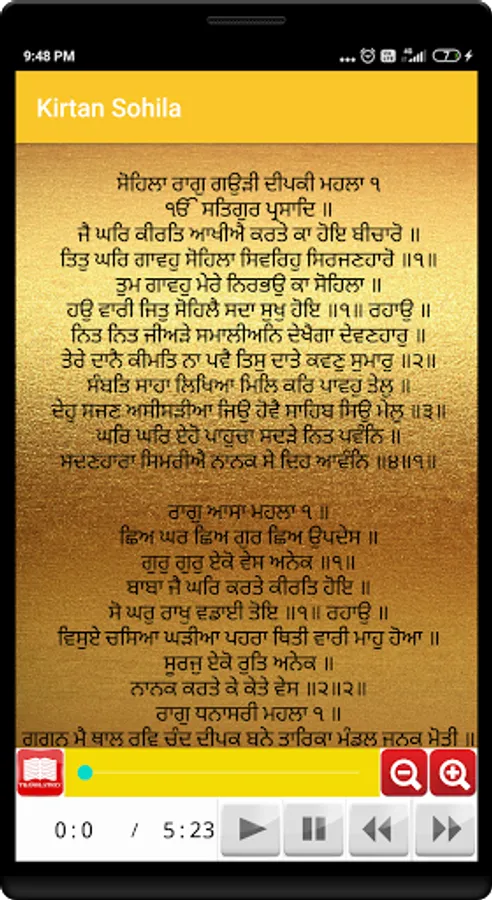 9:48 PM
4G
7
Kirtan Sohila
ਸੋਹਿਲਾ ਰਾਗੁ ਗਉੜੀ ਦੀਪਕੀ ਮਹਲਾ ੧
ੴ ਸਤਿਗੁਰ ਪ੍ਰਸਾਦਿ ॥
ਜੈ ਘਰਿ ਕੀਰਤਿ ਆਖੀਐ ਕਰਤੇ ਕਾ ਹੋਇ ਬੀਚਾਰੋ ॥
ਤਿਤੁ ਘਰਿ ਗਾਵਹੁ ਸੋਹਿਲਾ ਸਿਵਰਿਹੁ ਸਿਰਜਣਹਾਰੋ ॥੧॥
ਤੁਮ ਗਾਵਹੁ ਮੇਰੇ ਨਿਰਭਉ ਕਾ ਸੋਹਿਲਾ ॥
ਹਉ ਵਾਰੀ ਜਿਤੁ ਸੋਹਿਲੈ ਸਦਾ ਸੁਖੁ ਹੋਇ ॥੧॥ ਰਹਾਉ ॥
ਨਿਤ ਨਿਤ ਜੀਅੜੇ ਸਮਾਲੀਅਨਿ ਦੇਖੈਗਾ ਦੇਵਣਹਾਰੁ ॥
ਤੇਰੇ ਦਾਨੈ ਕੀਮਤਿ ਨਾ ਪਵੈ ਤਿਸੁ ਦਾਤੇ ਕਵਣੁ ਸੁਮਾਰੁ ॥੨॥
ਸੰਬਤਿ ਸਾਹਾ ਲਿਖਿਆ ਮਿਲਿ ਕਰਿ ਪਾਵਹੁ ਤੇਲੁ ॥
ਦੇਹੁ ਸਜਣ ਅਸੀਸੜੀਆ ਜਿਉ ਹੋਵੈ ਸਾਹਿਬ ਸਿਉ ਮੇਲੁ ॥੩॥
ਘਰਿ ਘਰਿ ਏਹੋ ਪਾਹੁਚਾ ਸਦੜੇ ਨਿਤ ਪਵੰਨਿ ॥
ਸਦਣਹਾਰਾ ਸਿਮਰੀਐ ਨਾਨਕ ਸੇ ਦਿਹ ਆਵੰਨਿ ॥੪॥੧॥
ਰਾਗੁ ਆਸਾ ਮਹਲਾ ੧ ॥
ਛਿਅ ਘਰ ਛਿਅ ਗੁਰ ਛਿਅ ਉਪਦੇਸ ॥
ਗੁਰੁ ਗੁਰੁ ਏਕੋ ਵੇਸ ਅਨੇਕ ॥੧॥
ਬਾਬਾ ਜੈ ਘਰਿ ਕਰਤੇ ਕੀਰਤਿ ਹੋਇ ॥
ਸੋ ਘਰੁ ਰਾਖੁ ਵਡਾਈ ਤੋਇ ॥੧॥ ਰਹਾਉ ॥
ਵਿਸੁਏ ਚਸਿਆ ਘੜੀਆ ਪਹਰਾ ਥਿਤੀ ਵਾਰੀ ਮਾਹੁ ਹੋਆ ॥
ਸੂਰਜੁ ਏਕੋ ਰੁਤਿ ਅਨੇਕ ॥
ਨਾਨਕ ਕਰਤੇ ਕੇ ਕੇਤੇ ਵੇਸ ॥੨॥੨॥
ਰਾਗੁ ਧਨਾਸਰੀ ਮਹਲਾ ੧ ॥
ਗਗਨ ਮੈ ਥਾਲੁ ਰਵਿ ਚੰਦੁ ਦੀਪਕ ਬਨੇ ਤਾਰਿਕਾ ਮੰਡਲ ਜਨਕ ਮੋਤੀ ॥
0:0 / 5:23